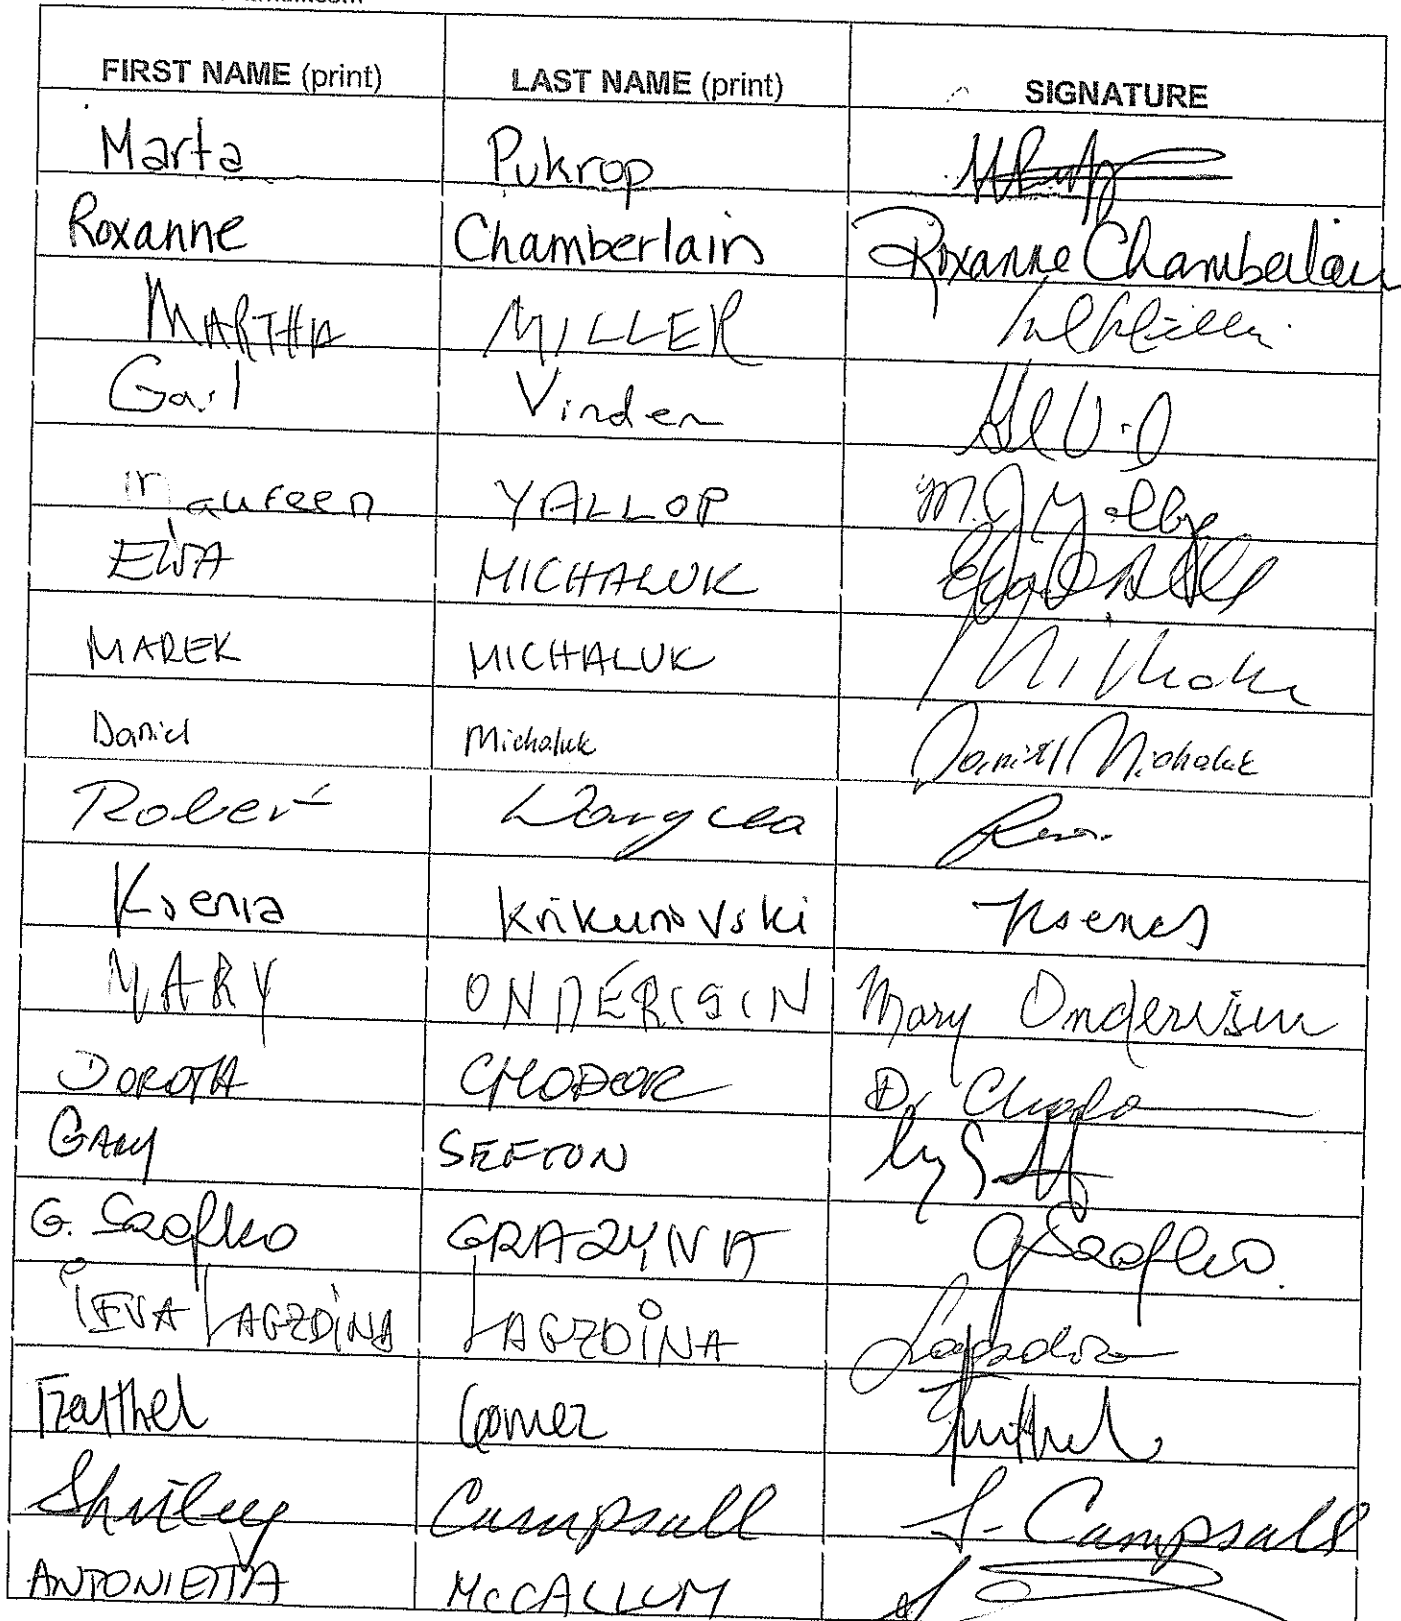 FIRST NAME (print) LAST NAME (print) SIGNATURE
Marta Pukrop
Roxanne Chamberlain Roxanne Chamberlain
MARTHA MILLER
Gail Vinden
Maureen YALLOP
EWA MICHALUK
MAREK MICHALUK
Daniel Michaluk Daniel Michaluk
Robert
Ksenia Krikunovski
MARY ONDERISIN Mary Onderisin
DOROTA CHODOR D. Chodor
GARY SEFTON
G. Szafko GRAZYNA G. Szafko
IEVA LAGZDINA LAGZDINA
Gomez
Shirley Campsall S. Campsall
ANTONIETTA McCALLUM